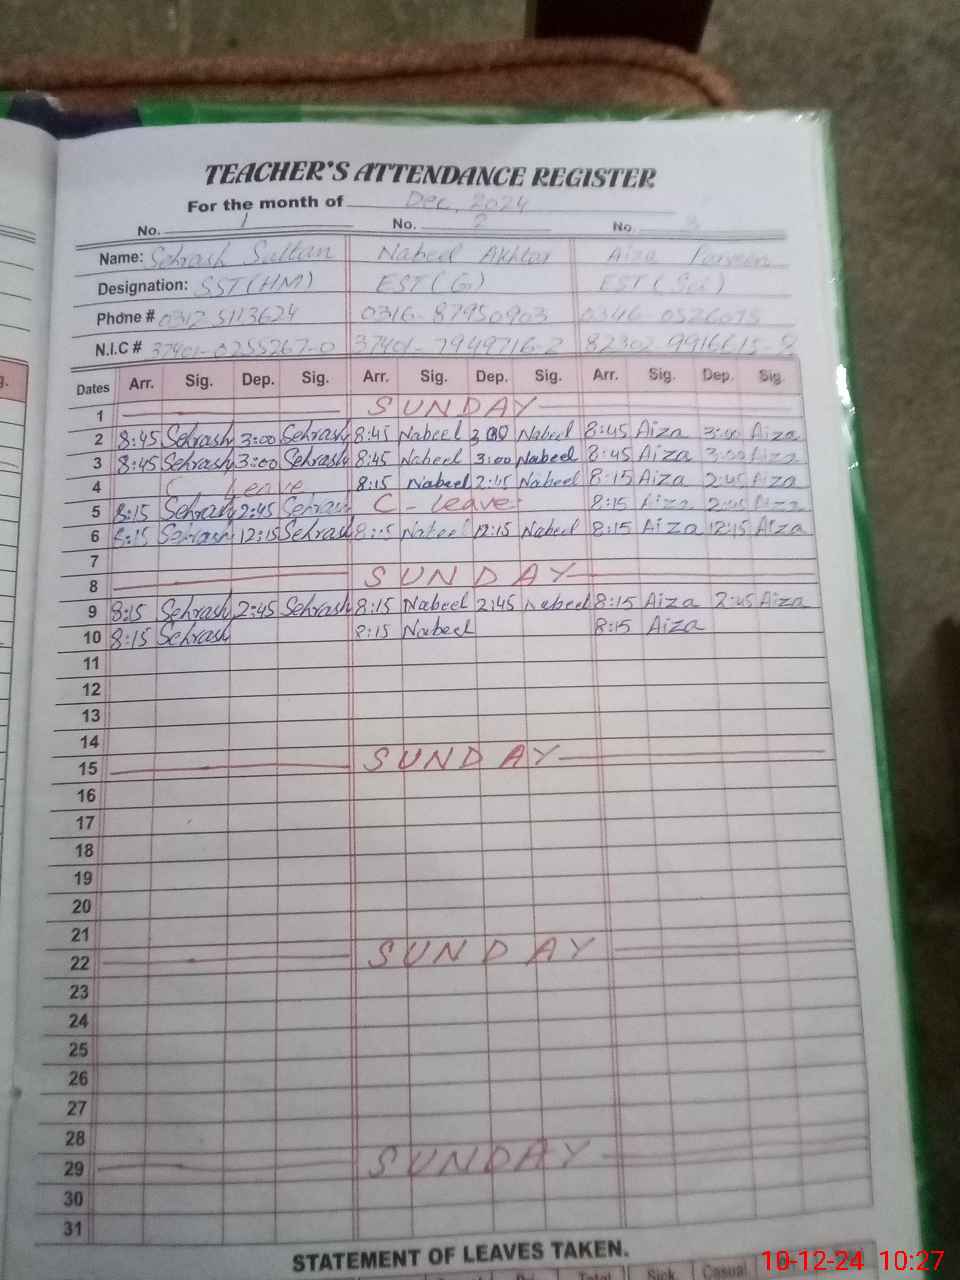 TEACHER'S ATTENDANCE REGISTER
For the month of Dec, 2024
No. 1 No. 2 No. 3
Name: Sehrash Sultan Nabeel Akhtar Aiza Parveen
Designation: SST (HM) EST (G) EST (Sci)
Phone # 0312 5113624 0316-87950903 0346-0526075
N.I.C # 37401-0255267-0 37401-7949716-2 82302-9916615-8
Dates Arr. Sig. Dep. Sig. Arr. Sig. Dep. Sig. Arr. Sig. Dep. Sig.
1 SUNDAY
2 8:45 Sehrash 3:00 Sehrash 8:45 Nabeel 3:00 Nabeel 8:45 Aiza 3:00 Aiza
3 8:45 Sehrash 3:00 Sehrash 8:45 Nabeel 3:00 Nabeel 8:45 Aiza 3:00 Aiza
4 C Leave 8:15 Nabeel 2:45 Nabeel 8:15 Aiza 2:45 Aiza
5 8:15 Sehrash 2:45 Sehrash C - leave 8:15 Aiza 2:45 Aiza
6 8:15 Sehrash 12:15 Sehrash 8:15 Nabeel 12:15 Nabeel 8:15 Aiza 12:15 Aiza
7
8 SUNDAY
9 8:15 Sehrash 2:45 Sehrash 8:15 Nabeel 2:45 Nabeel 8:15 Aiza 2:45 Aiza
10 8:15 Sehrash 8:15 Nabeel 8:15 Aiza
11
12
13
14
15 SUNDAY
16
17
18
19
20
21
22 SUNDAY
23
24
25
26
27
28
29 SUNDAY
30
31
STATEMENT OF LEAVES TAKEN.
Total Sick Casual
10-12-24 10:27